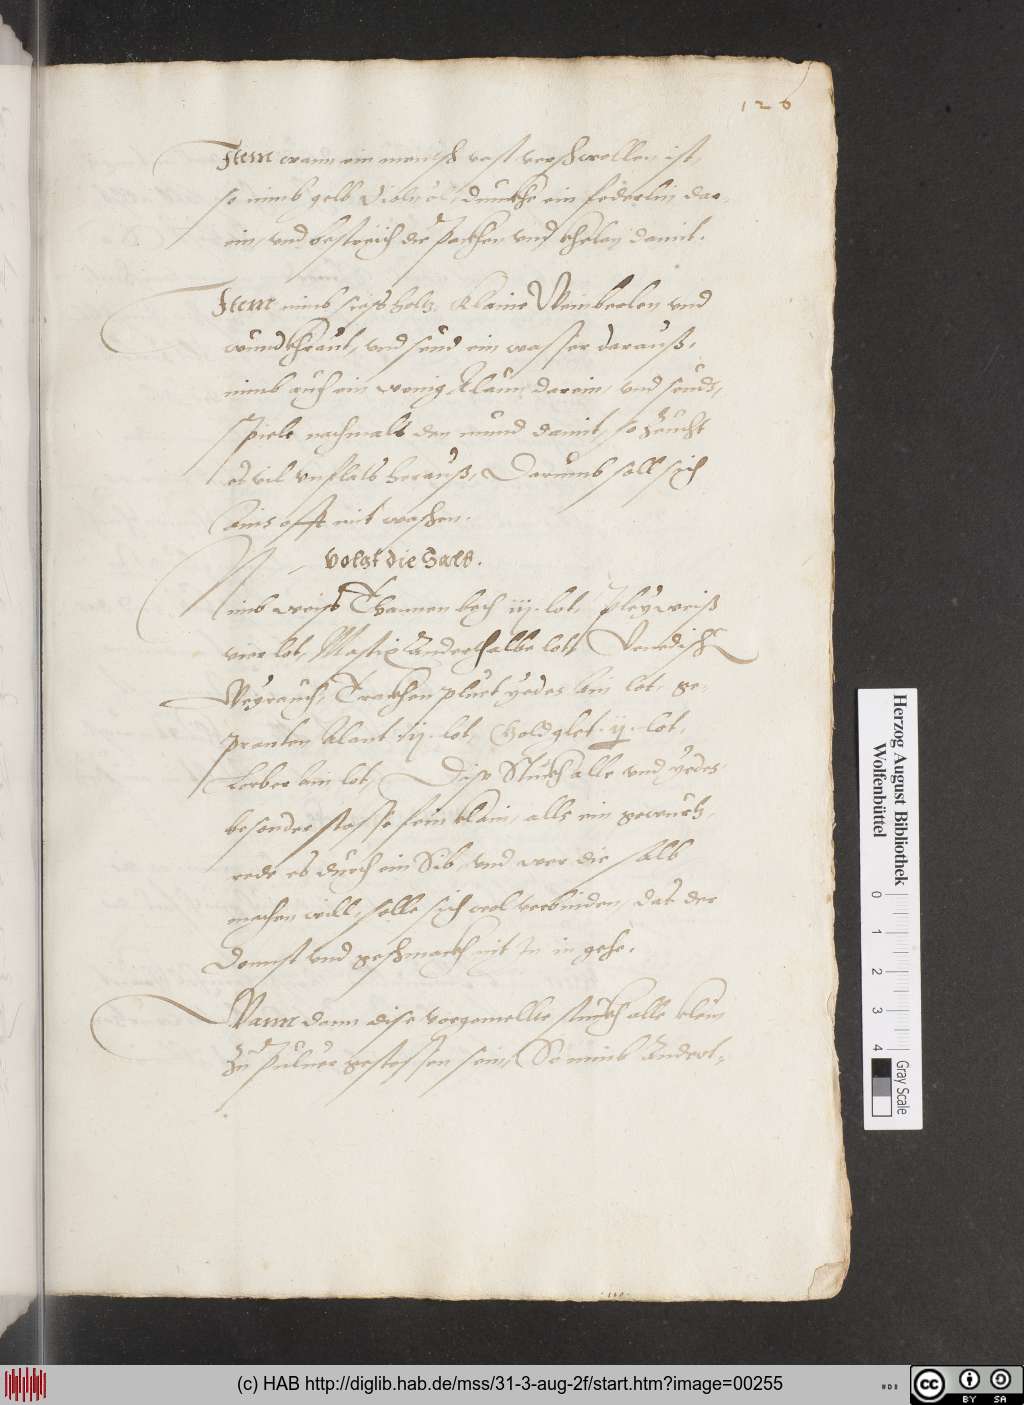 126
Item wann ein mensch vast verschwollen ist,
so nimb gelb Violn öl, dunckhe ein federlin dar„
ein, vnd bestreich die packhen vnd khelen damit.
Item nimb siesß holtz. klaine Weinberlen vnd
wundkhraut, vnd seud ein wasser darauß,
nimb auch ein wenig Alaun darein, vnd seuds,
Spiele nachmals den mund damit, so zeucht
es vil vnflats herauß, Darumb soll sich
ains offt mit waschen.
Volgt die Salb.
Nimb weiß Thannen bech iij. lot, Pleyweiß
vier lot, Mastix Anderthalbe lot, Venedisch
Weyrauch, Trackhen pluet yedes ain lot, ge„
pranten Alaut iij. lot, Goldglet. ij. lot,
Lorber ain lot, Dise Stuckh alle vnd yedes
besonder stosse fein klain, alls ein gewürtz,
rede es durch ein Sib, vnd wer die salb
machen will, solle sich wol verbinden, das der
Dunst vnd geschmackh nit In in gehe.
Wann dann dise vorgemellte stuckh alle klein
Zu puluer gestossen sein, So nimb Andert„
Herzog August Bibliothek
Wolfenbüttel
0 1 2 3 4
Gray Scale
(c) HAB http://diglib.hab.de/mss/31-3-aug-2f/start.htm?image=00255
cc BY SA